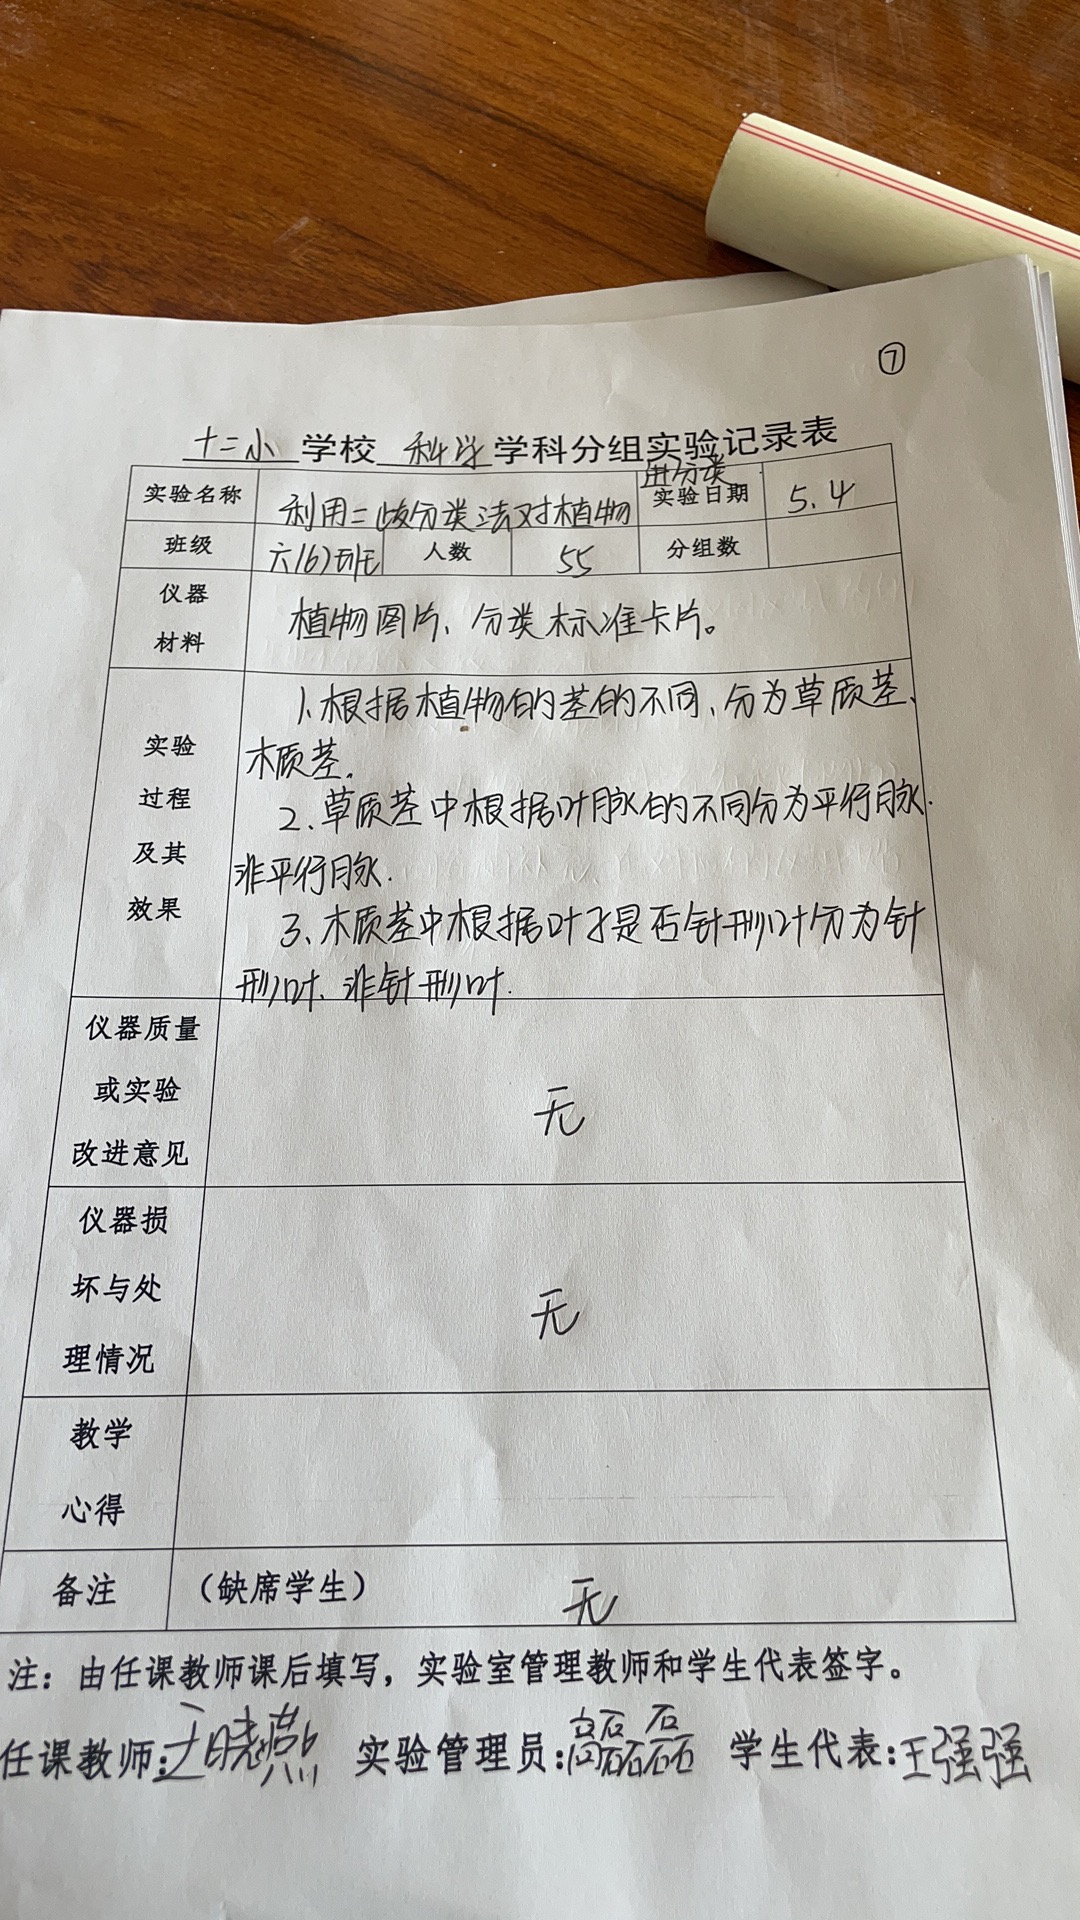 ⑦
十二小 学校 科学 学科分组实验记录表
实验名称 利用二歧分类法对植物进行分类 实验日期 5.4
班级 六(6)班 人数 55 分组数
仪器材料 植物图片、分类标准卡片。
实验过程及其效果
1、根据植物的茎的不同、分为草质茎、
木质茎.
2、草质茎中根据叶脉的不同分为平行脉.
非平行脉.
3、木质茎中根据叶子是否针形叶分为针
形叶、非针形叶.
仪器质量或实验改进意见 无
仪器损坏与处理情况 无
教学心得
备注 (缺席学生) 无
注：由任课教师课后填写，实验室管理教师和学生代表签字。
任课教师:王晓燕 实验管理员:高磊磊 学生代表:王强强